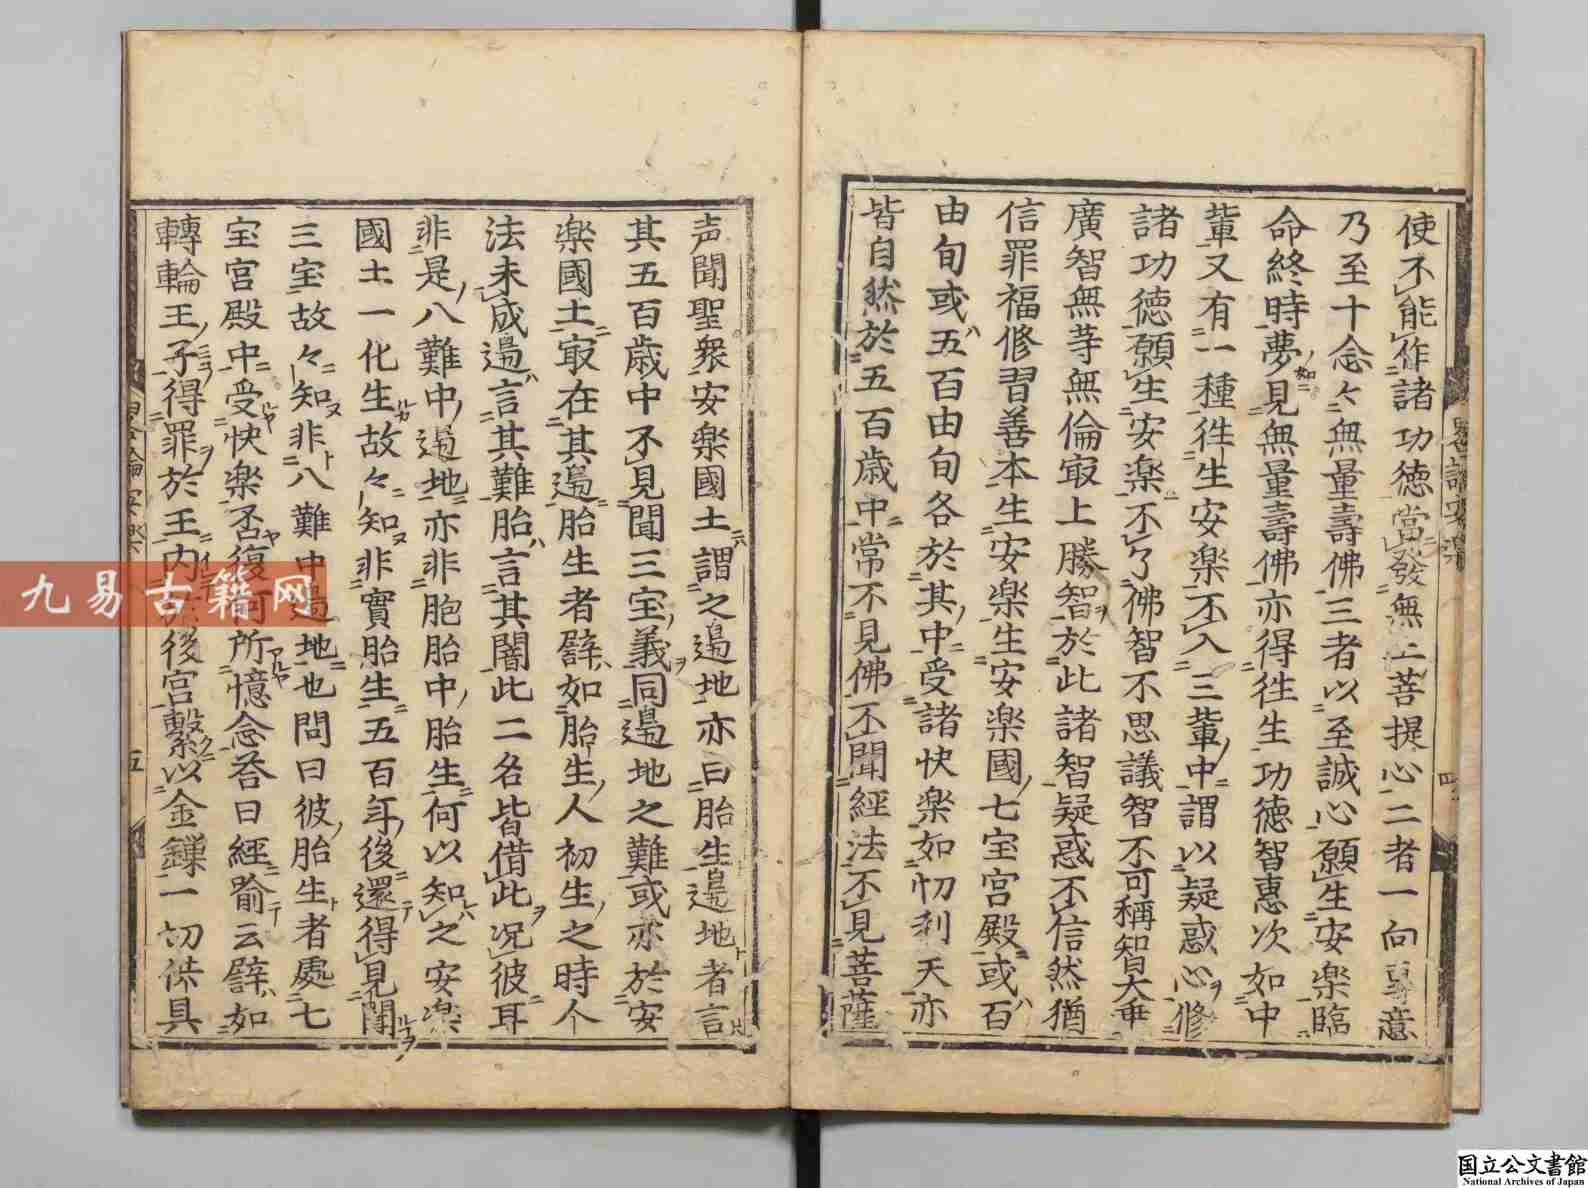 使不能作諸功德當發無上菩提心二者一向專意
乃至十念々無量壽佛三者以至誠心願生安楽臨
命終時夢見無量壽佛亦得徃生功德智惠次如中
輩又有一種徃生安楽不入三輩中謂以疑惑心修
諸功德願生安楽不了佛智不思議智不可稱智大乗
廣智無䓁無倫㝡上勝智於此諸智疑惑不信然猶
信罪福修習善本生安楽生安楽國七宝宮殿或百
由旬或五百由旬各於其中受諸快楽如忉利天亦
皆自然於五百歳中常不見佛不聞經法不見菩薩
声聞聖衆安楽國土謂之邉地亦曰胎生邉地者言
其五百歳中不見聞三宝義同邉地之難或亦於安
楽國土㝡在其邉胎生者譬如胎生人初生之時个
法未成邉言其難胎言其闇此二名皆借此况彼耳
非是八難中邉地亦非胞胎中胎生何以知之安楽
國土一化生故々知非實胎生五百年後還得見聞
三宝故々知非八難中邉地也問曰彼胎生者處七
宝宮殿中受快楽否復何所憶念荅曰經喻云譬如
轉輪王子得罪於王内後宮繫以金鏁一切供具
略論安楽
四
五
九易古籍网
国立公文書館
National Archives of Japan